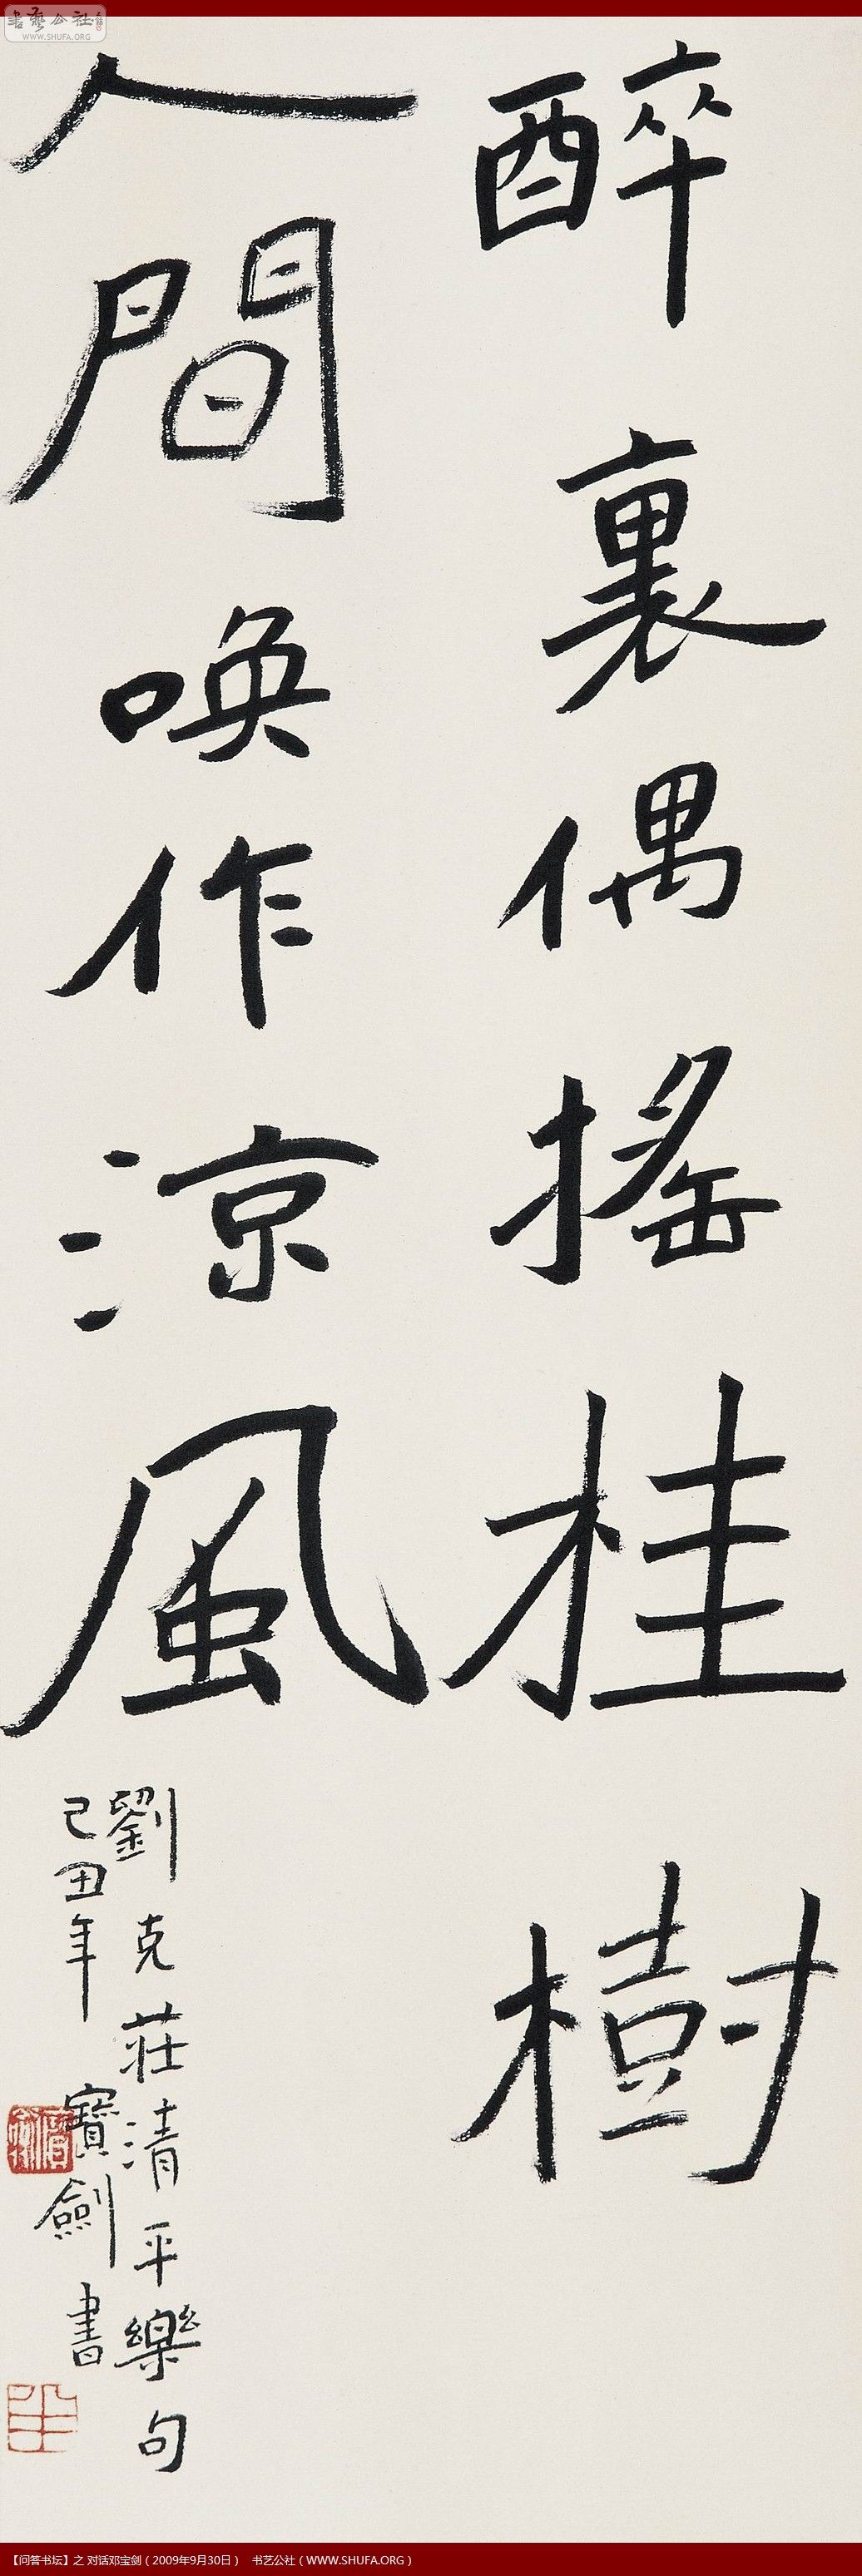 醉裏偶搖桂樹
人間喚作涼風
劉克莊清平樂句
己丑年寶劍書
書藝公社
WWW.SHUFA.ORG
【问答书坛】之 对话邓宝剑（2009年9月30日） 书艺公社（WWW.SHUFA.ORG）